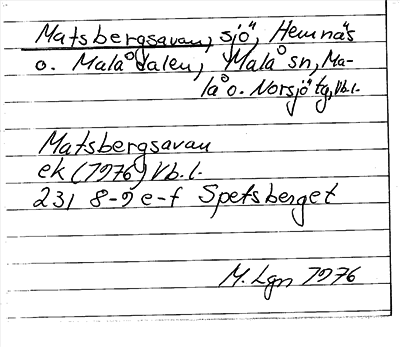 Matsbergsavan, sjö, Hemnäs
o. Malådalen, Malå sn, Ma-
lå o. Norsjö tg, Vb.l.
Matsbergsavan
ek (1976) Vb.l.
23I 8-9 e-f Spetsberget
M. Lgn 1976